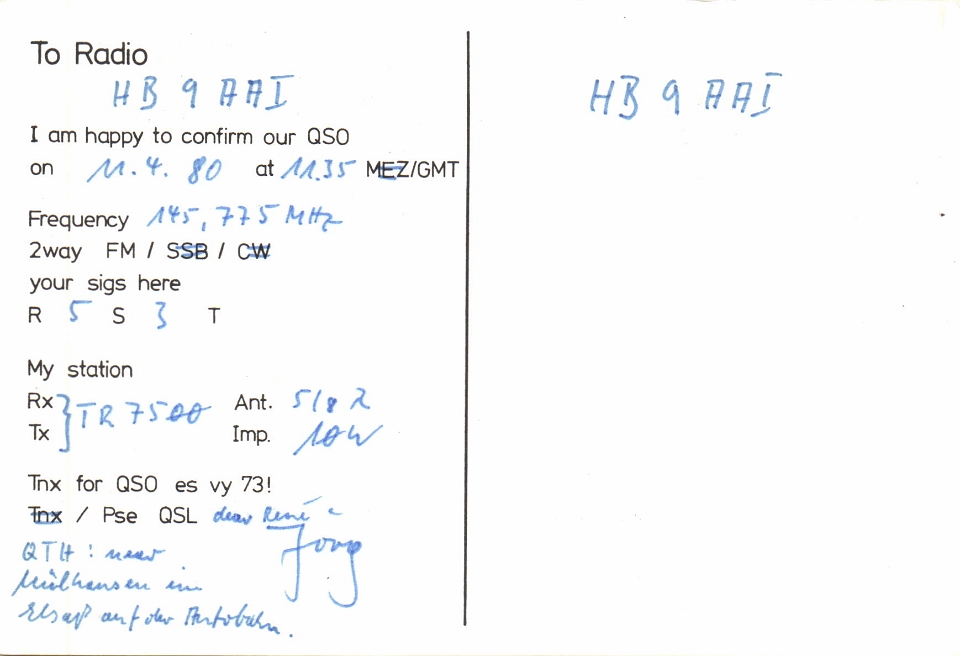 To Radio
HB 9 AAI
I am happy to confirm our QSO
on 11.4.80 at 11.35 MEZ/GMT
Frequency 145,775 MHz
2way FM / SSB / CW
your sigs here
R 5 S 3 T
My station
Rx } TR 7500 Ant. 5/8 λ
Tx Imp. 10W
Tnx for QSO es vy 73!
Tnx / Pse QSL dear René
QTH: near
Mülhausen im
Elsaß auf der Autobahn.
HB 9 AAI